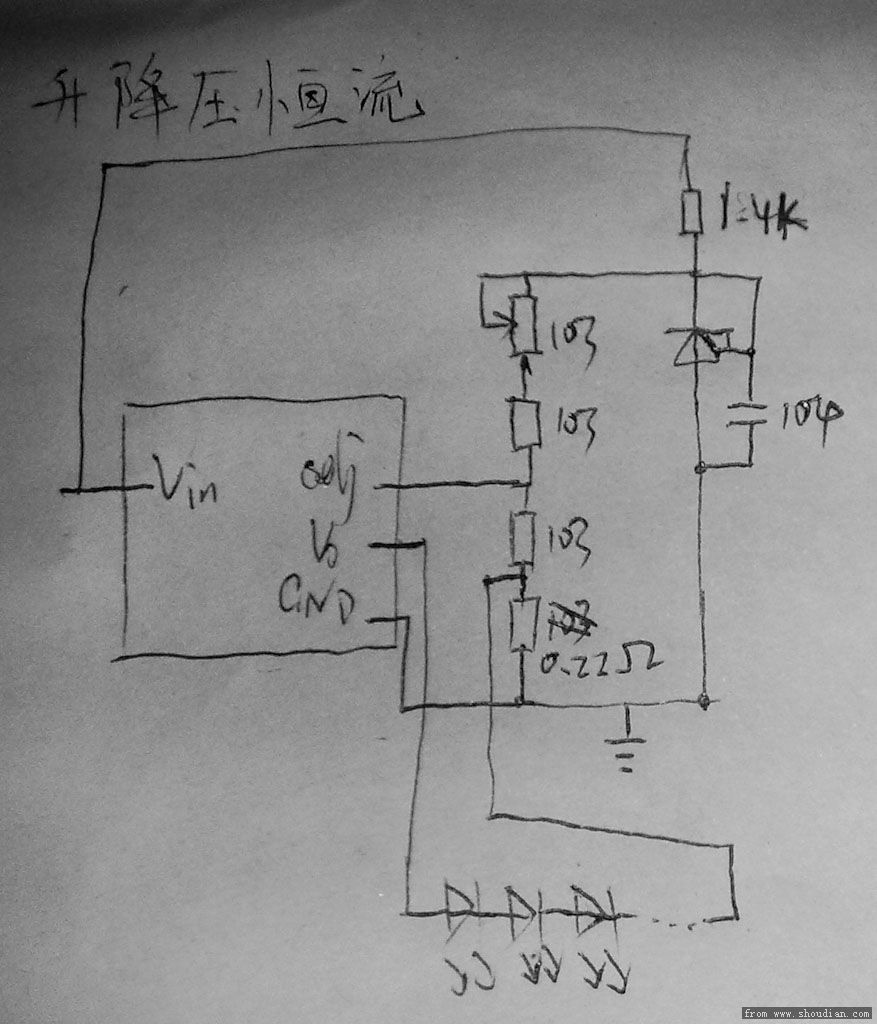 升降压恒流
1.4K
103
103
104
Vin
adj
103
Vo
GND
0.22Ω
from www.shoudian.com